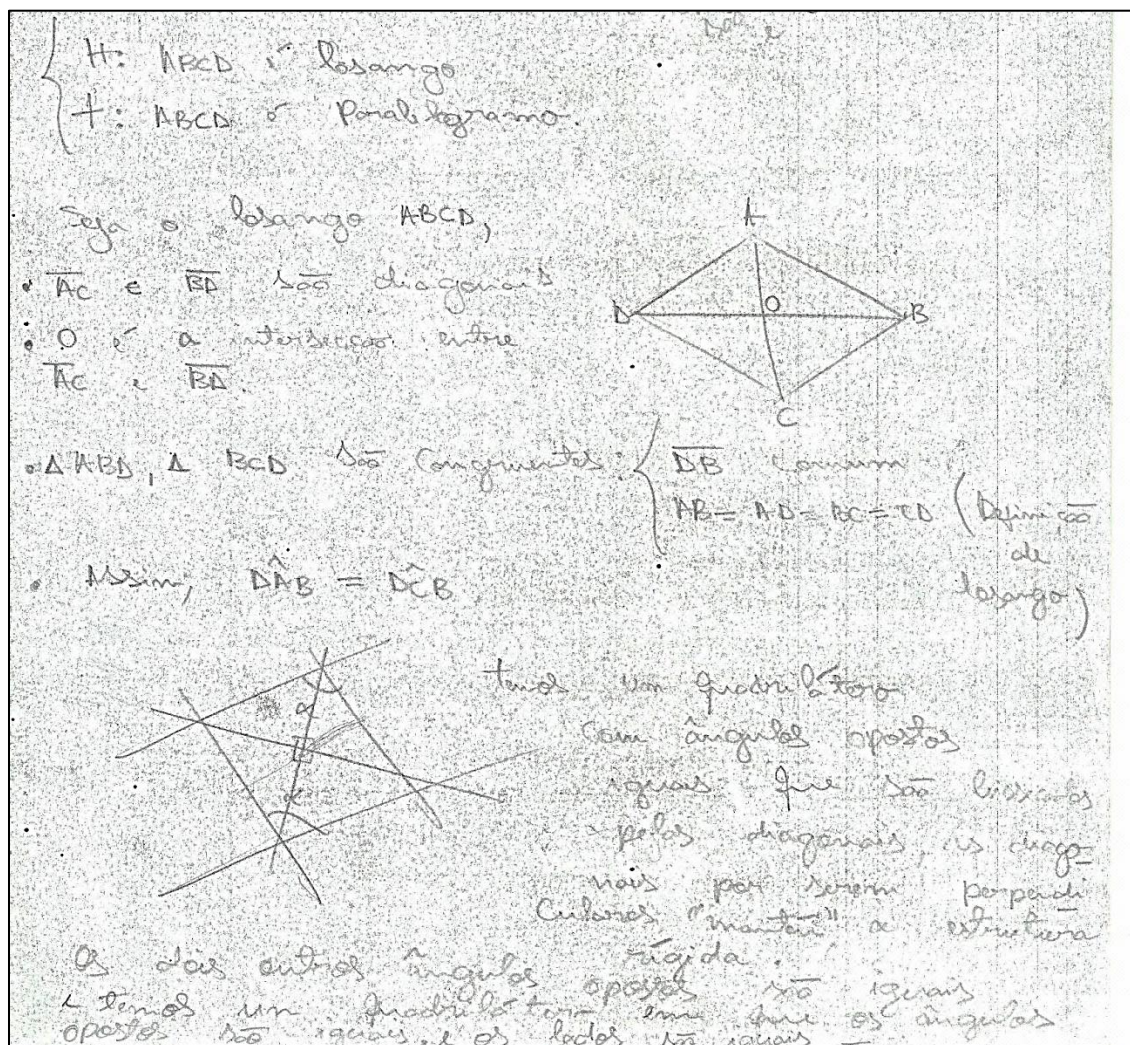 H: ABCD é losango
t: ABCD é Paralelogramo.
Seja o losango ABCD,
• AC e BD são diagonais
• O é a intersecção entre
AC e BD.
A
D
O
B
C
• Δ ABD, Δ BCD são congruentes: DB comum
AB = AD = BC = CD (Definição
de
losango)
• Assim, DÂB = DĈB
α
α
temos um quadrilátero
com ângulos opostos
iguais que são
pelas diagonais, as diago-
nais por serem perpendi
culares "mantém" a estrutura
rígida.
Os dois outros ângulos opostos são iguais
e temos um quadrilátero em que os ângulos
opostos são iguais e os lados são iguais